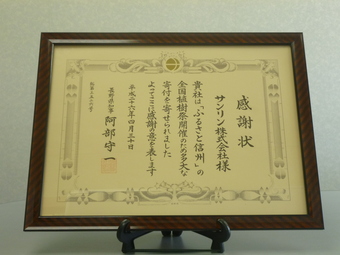 感謝状
サンリン株式会社様
貴社は「ふるさと信州」の
全国植樹祭開催のため多大な
寄付を寄せられました
よってここに感謝の意を表します
平成二十六年四月三十日
長野県知事 阿部守一